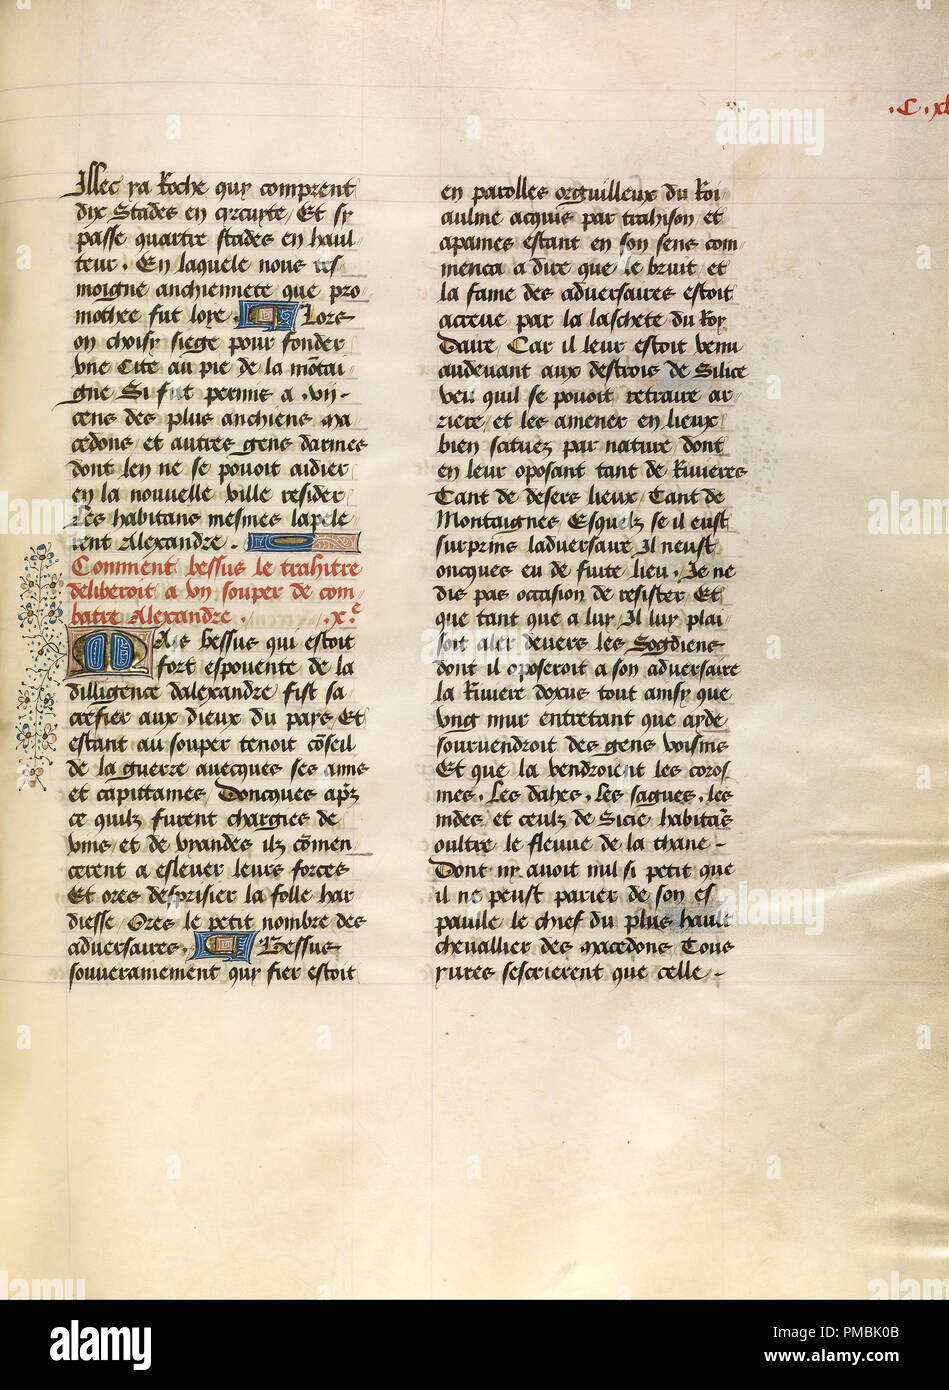 .C.xl
Illec ya Roche quy comprent
dix Stades en circuyte / Et sy
passe quatre stades en haul
teur . En laquele nous tes
moigne anchiennete que pro
mothee fut loye . Lors
on choisy siege pour fonder
vne Cite au pie de la mõtai
gne Si fut permis a .vij.
cens des plus anchiens ma
cedons et autres gens darmes
dont len ne se pouoit aidier
en la nouuelle ville resider
Les habitans mesmes lapele
rent Alexandre .
Comment bessus le trahitre
deliberoit a vn souper de com
batre Alexandre . .x.e
Mais bessus qui estoit
fort espouente de la
dilligence dalexandre fist sa
crefier aux dieux du pays / Et
estant au souper tenoit cõseil
de la guerre auecques ses amis
et capittaines / Doncques apz
ce quilz furent chargies de
vins et de vyandes ilz cõmen
cerent a esleuer leurs forces
Et ores desprisier la folle har
diesse / Ores le petit nombre des
aduersaires . Bessus
souuerainement quy fier estoit
en parolles orguilleux du Roi
aulme acquis par trahison et
apaines estant en son sens com
menca a dire que le bruit et
la fame des aduersaires estoit
acreue par la laschete du Roy
Daire / Car il leur estoit venu
audeuant aux destrois de Silice
veu quil se pouoit retraire ar
riere / et les amener en lieux
bien scituez par nature dont
en leur oposant tant de Riuieres
Tant de desers lieux / Tant de
Montaignes / Esquelz se il eust
surprins laduersaire / Il neust
oncques eu de fuite lieu . Je ne
dis pas occasion de resister / Et
que tant que a luy / Il luy plai
soit aler deuers les Sogdiens
dont il oposeroit a son aduersaire
la Riuiere doxus tout ainsy que
vng mur entretant que ayde
souruendroit des gens voisins
Et que la vendroient les coros
mes . Les dahes . Les sagues . les
indes et ceulz de Sicie habitãs
oultre le fleuue de la thane -
Dont ny auoit nul si petit que
il ne peust parier de son es
paulle le chief du plus hault
cheuallier des macedons Tous
yures sescrierent que celle -
alamy stock photo
Image ID: PMBK0B
www.alamy.com